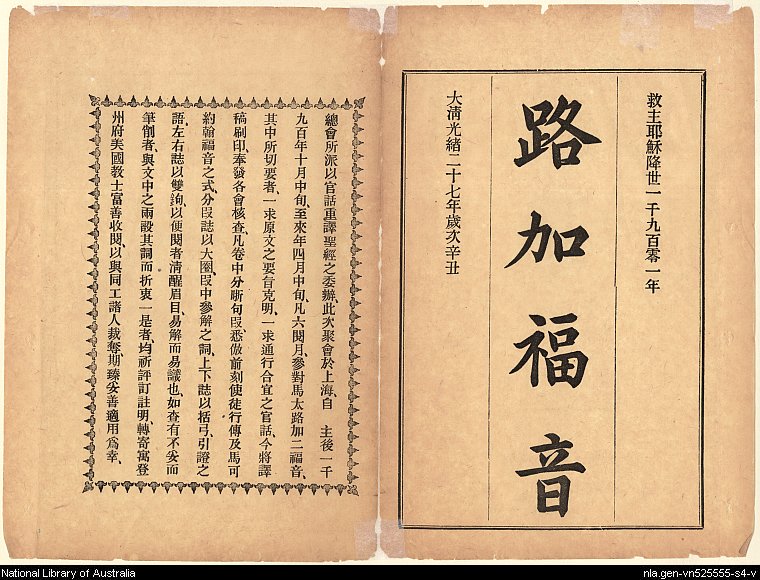 救主耶穌降世一千九百零一年
路加福音
大淸光緒二十七年歲次辛丑
總會所派以官話重譯聖經之委辦、此次聚會於上海、自　主後一千
九百年十月中旬、至來年四月中旬、凡六閱月、參對馬太路加二福音、
其中所切要者、一求原文之要旨克明、一求通行合宜之官話、今將譯
稿刷印、奉發各會核查、凡卷中分斷句段、悉倣前刻使徒行傳及馬可
約翰福音之式、分段誌以大圈、段中參解之詞、上下誌以括弓、引證之
語、左右誌以雙鉤、以便閱者淸醒眉目、易解而易議也、如查有不妥而
筆削者、與文中之兩設其詞而折衷一是者、均祈評訂註明、轉寄寓登
州府美國教士富善收閱、以與同工諸人裁奪、期臻妥善適用爲幸、
National Library of Australia
nla.gen-vn525555-s4-v